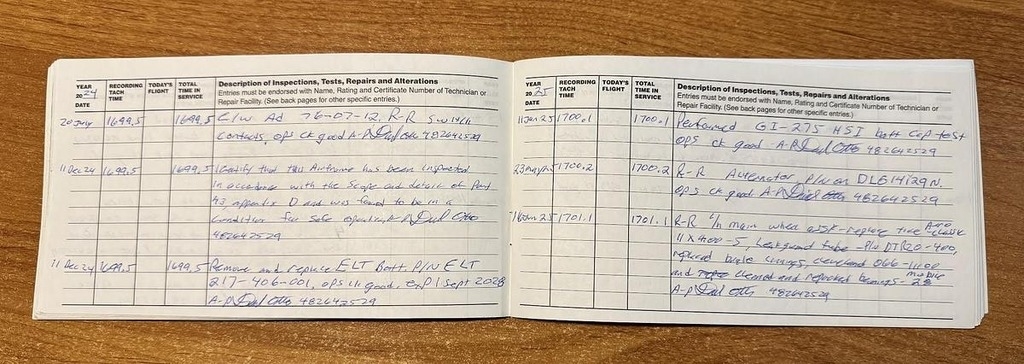 YEAR
20 24
DATE
RECORDING
TACH
TIME
TODAY'S
FLIGHT
TOTAL
TIME IN
SERVICE
Description of Inspections, Tests, Repairs and Alterations
Entries must be endorsed with Name, Rating and Certificate Number of Technician or
Repair Facility. (See back pages for other specific entries.)
20 July 1699.5 1699.5 C/W Ad 76-07-12, R-R Switch
contacts, ops ck good A-P 482642529
11 Dec 24 1699.5 1699.5 I Certify that this Airframe has been inspected
in accordance with the scope and detail of Part
43 appendix D and was found to be in a
Condition for safe operation, A-P
482642529
11 Dec 24 1699.5 1699.5 Remove and replace ELT Batt. P/N ELT
217-406-001, ops ck good, exp 1 Sept 2028
A-P 482642529
YEAR
20 25
DATE
RECORDING
TACH
TIME
TODAY'S
FLIGHT
TOTAL
TIME IN
SERVICE
Description of Inspections, Tests, Repairs and Alterations
Entries must be endorsed with Name, Rating and Certificate Number of Technician or
Repair Facility. (See back pages for other specific entries.)
11 Jan 25 1700.1 1700.1 Performed GI-275 HSI batt Cap test
ops ck good A-P 482642529
23 may 25 1700.2 1700.2 R-R Alternator, P/N on DLG14129N.
ops ck good A-P 482642529
1701.1 1701.1 R-R L/h main wheel replace tire Aero classic
11 x 400-5, Leakguard tube -P/N 20-400,
replaced brake linings, cleveland 066-11100
and cleaned and repacked bearings - mobile 28
A-P 482642529